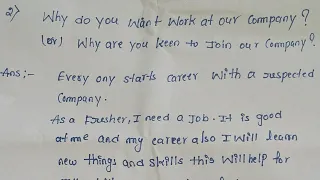 2) Why do you want work at our Company?
(or) Why are you keen to Join our Company?
Ans:- Every any starts career with a respected
Company.
As a Fresher, I need a Job. It is good
at me and my career also I will learn
new things and skills this will help for